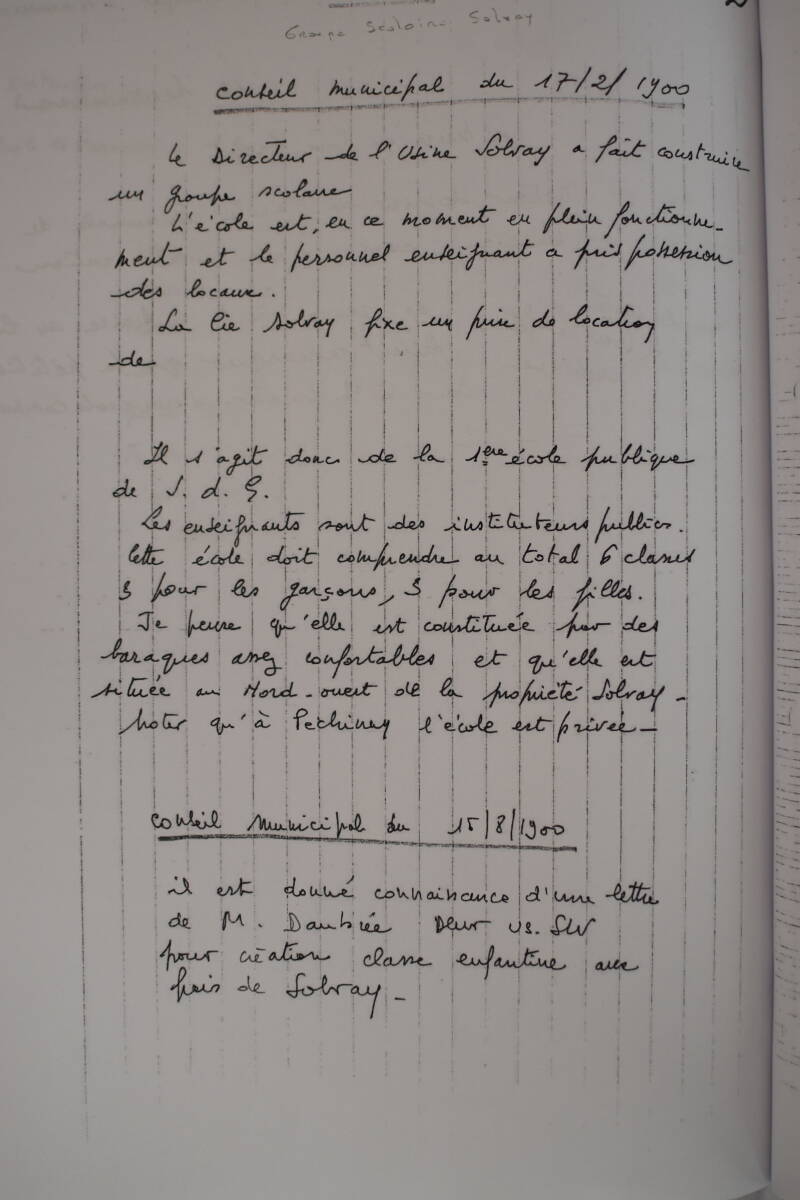 Groupe Scolaire Solvay
Conseil Municipal du 17/2/1900
Le Directeur de l'Usine Solvay a fait construire
un groupe scolaire
L'école est, en ce moment en plein fonctionne-
ment et le personnel enseignant a pris possession
des locaux.
La Cie Solvay fixe un prix de location
de
Il s'agit donc de la 1ère école publique
de S. d. G.
Les enseignants sont des instituteurs publics.
Cette école doit comprendre au total 6 classes
3 pour les garçons, 3 pour les filles.
Je pense qu'elle est constituée par des
baraques assez confortables et qu'elle est
située au Nord-ouest de la propriété Solvay -
Noter qu'à Pechiney l'école est privée -
Conseil Municipal du 15/8/1900
il est donné connaissance d'une lettre
de M. Daubrée Deur us. SW
pour création classe enfantine aux
frais de Solvay -